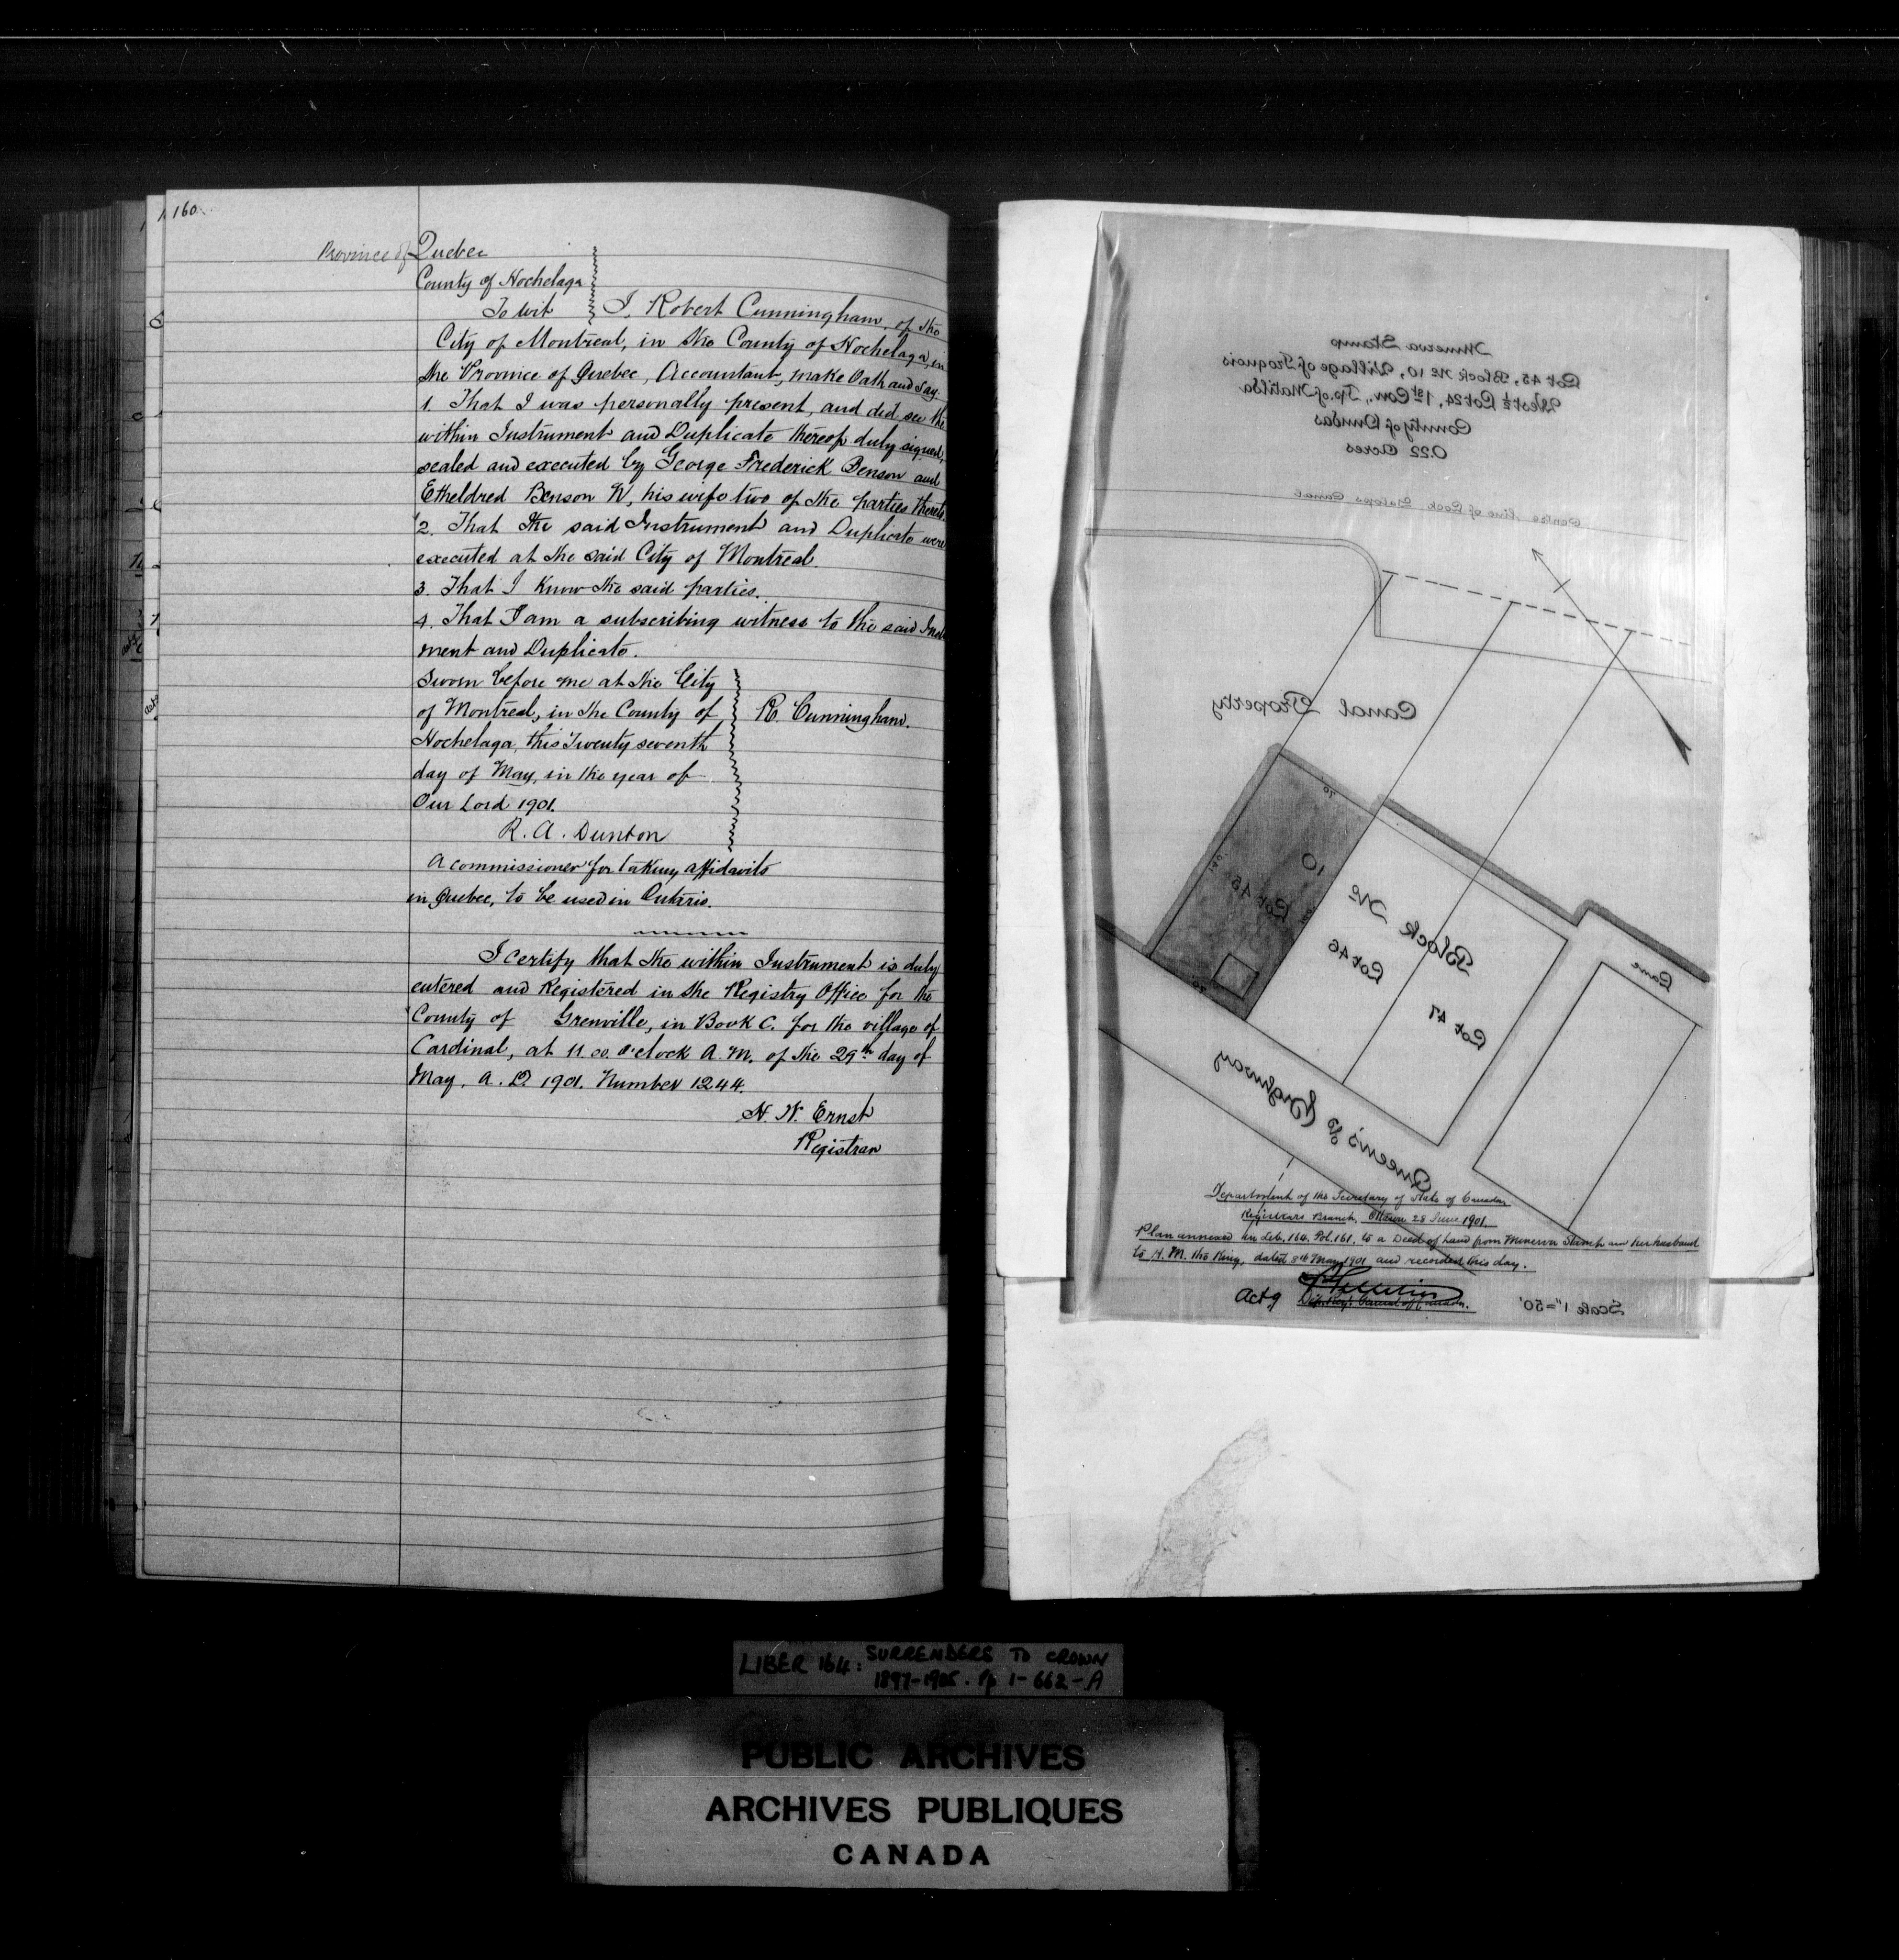 160
Province of Quebec
County of Hochelaga
To wit
I, Robert Cunningham, of the
City of Montreal, in the County of Hochelaga, in
the Province of Quebec, Accountant, make Oath and Say.
1. That I was personally present, and did see the
within Instrument and Duplicate thereof duly signed,
sealed and executed by George Frederick Benson and
Etheldred Benson W, his wife two of the parties thereto.
2. That the said Instrument and Duplicate were
executed at the said City of Montreal.
3. That I know the said parties.
4. That I am a subscribing witness to the said
ment and Duplicate.
Sworn before me at the City
of Montreal, in the County of
Hochelaga, this Twenty seventh
day of May, in the year of
Our Lord 1901.
R. Cunningham.
R. A. Dunton
A commissioner for taking affidavits
in Quebec, to be used in Ontario.
I certify that the within Instrument is duly
entered and Registered in the Registry Office for the
County of Grenville, in Book C. for the village of
Cardinal, at 11.00 o'clock A.M. of the 29th day of
May, A.D. 1901. Number 1244.
H. W. Ernst
Registrar
Minerva Stamp
Lot 45, Block No 10, Village of Iroquois
West ½ Lot 24, 1st Con., Tp. of Matilda
County of Dundas
0.22 Acres
Centre line of Lock Galops Canal
Canal Property
70
Lot 45
10
Block No
Lot 46
Lot 47
Lane
Queen's Highway
Department of the Secretary of State of Canada
Registrars Branch, Ottawa 28 June 1901.
Plan annexed in Lib. 164. Fol. 161. to a Deed of Land from Minerva Stamp and her husband
to H. M. the King, dated 8th May 1901 and recorded this day.
Actg
Dep. Regr. General of Canada.
Scale 1"=50'
LIBER 164: SURRENDERS TO CROWN
1897-1905. Pp 1-662-A
PUBLIC ARCHIVES
ARCHIVES PUBLIQUES
CANADA